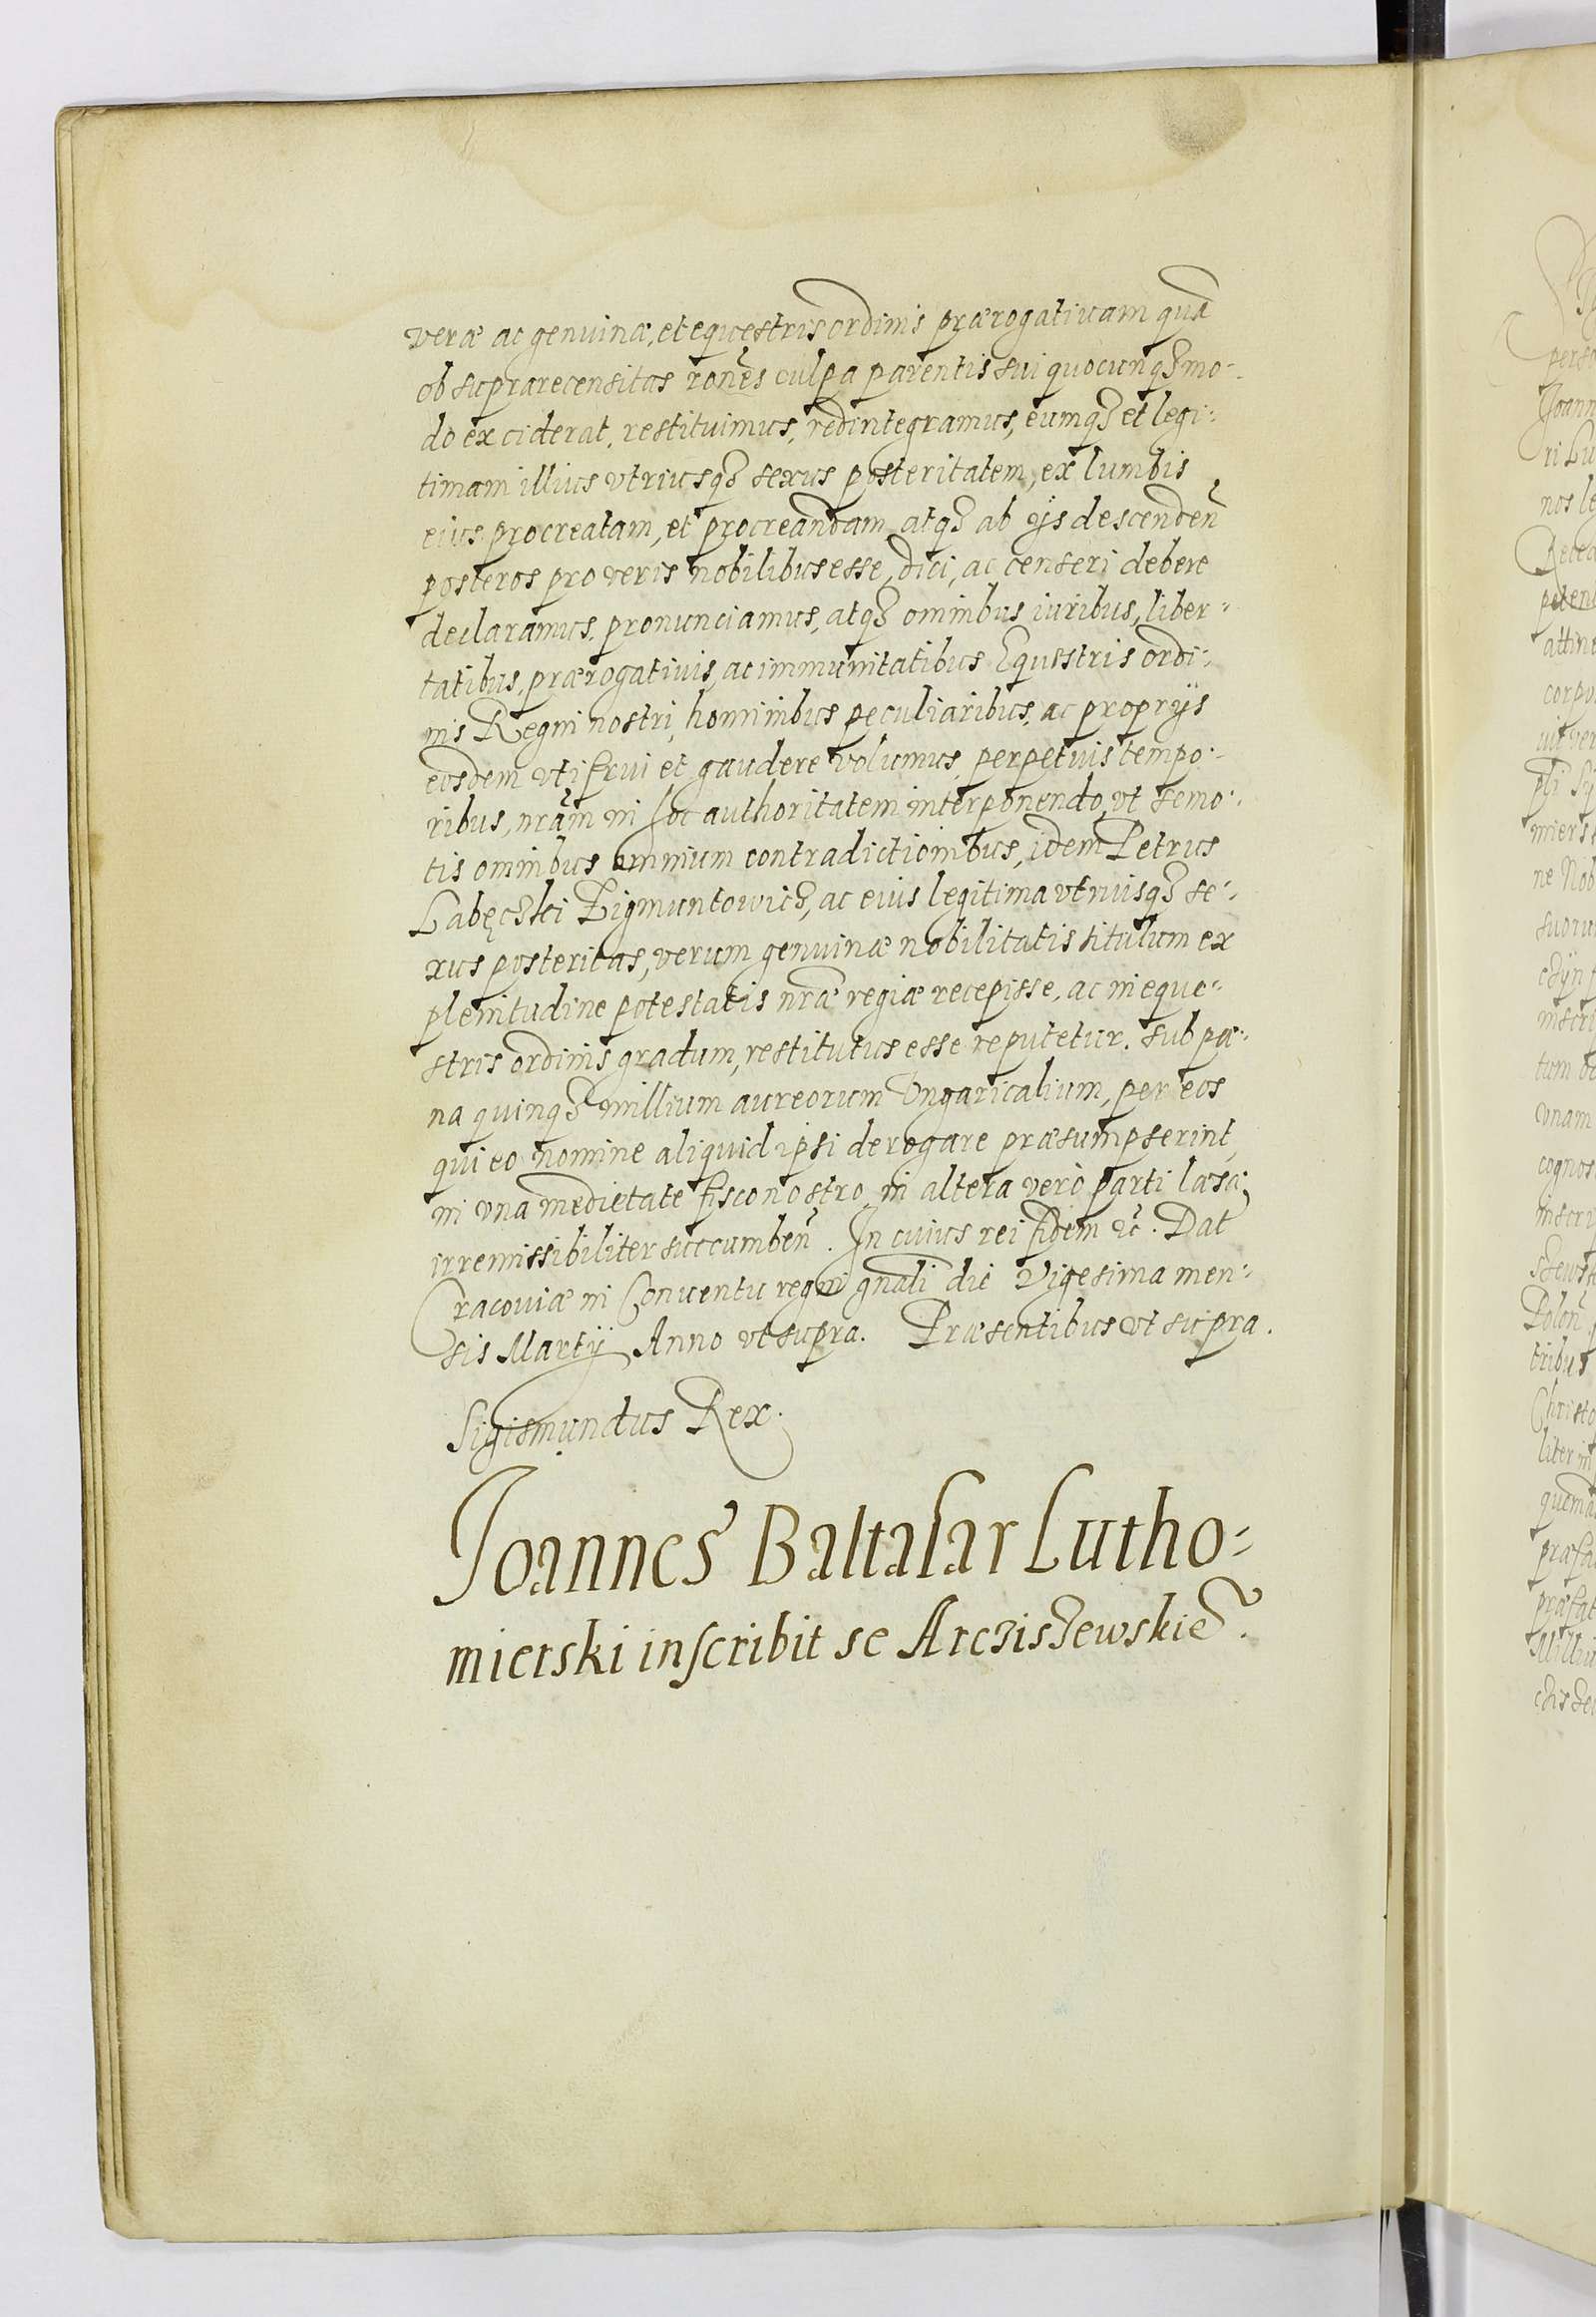 veræ ac genuinæ, et equestris ordinis prærogatiuam quã
ob suprarecensitas rones̃ culpa parentis sui quocunqꝫ mo-
do exciderat, restituimus, redintegramus, eumqꝫ et legi-
timam illius vtriusqꝫ sexus posteritatem, ex lumbis
eius procreatam, et procreandam atqꝫ ab ijs descendeñ
posteros pro veris nobilibus esse, dici, ac censeri debere
declaramus, pronunciamus, atqꝫ omnibus iuribus, liber-
tatibus, prærogatiuis, ac immunitatibus Equestris ordi-
nis Regni nostri, hominibus peculiaribus, ac proprijs
eosdem vti frui et gaudere volumus, perpetuis tempo-
ribus, nrãm in hoc authoritatem interponendo, vt semo-
tis omnibus omnium contradictionibus, idem Petrus
Łabęczki Zigmuntowicz, ac eius legitima vtriusqꝫ se-
xus posteritas, verum genuinæ nobilitatis titulum ex
plenitudine potestatis nrãe regiæ recepisse, ac in eque-
stris ordinis gradum, restitutus esse reputetur. sub pæ-
na quinqꝫ millium aureorum Vngaricalium, per eos
qui eo nomine aliquid ipsi derogare præsumpserint,
in vna medietate fisco nostro, in altera verò parti læsæ
irremissibiliter succumbeñ. In cuius rei fidem ec̃. Dat̃
Cracouiæ in Conuentu regni gnãli die Vigesima men-
sis Martij Anno vt supra. Præsentibus vt supra.
Sigismundus Rex.
Joannes Baltasar Lutho-
mierski inscribit se Arcziszewskie͂.
perso
Joann
ri Lu
nos le
attine
corpo
mierse
ne Nob
suoru
inscri
tum
vnam
cognos
inscri
szewsk
Polon̄
tribus
Christo
liter in
præfa
præfat